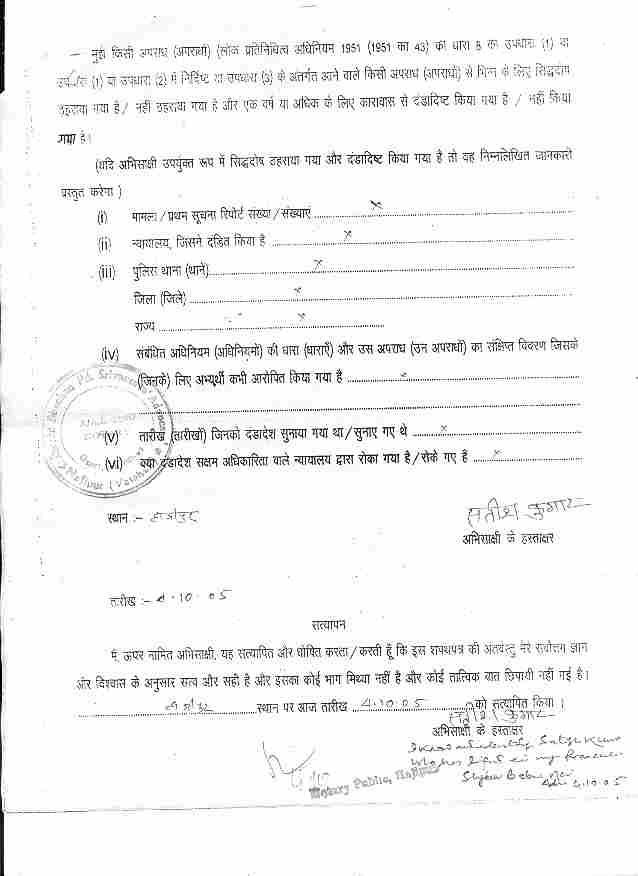 – मुझे किसी अपराध (अपराधों) (लोक प्रतिनिधित्व अधिनियम 1951 (1951 का 43) की धारा 8 की उपधारा (1) या
उपधारा (1) या उपधारा (2) में निर्दिष्ट या उपधारा (3) के अंतर्गत आने वाले किसी अपराध (अपराधों) से भिन्न के लिए सिद्धदोष
ठहराया गया है / नहीं ठहराया गया है और एक वर्ष या अधिक के लिए कारावास से दंडादिष्ट किया गया है / नहीं किया
गया है।
(यदि अभिसाक्षी उपर्युक्त रूप में सिद्धदोष ठहराया गया और दंडादिष्ट किया गया है तो वह निम्नलिखित जानकारी
प्रस्तुत करेगा )
(i) मामला / प्रथम सूचना रिपोर्ट संख्या / संख्याएं ........ x ........
(ii) न्यायालय, जिसने दंडित किया है ........ x ........
(iii) पुलिस थाना (थाने) ........ x ........
जिला (जिले) ........ x ........
राज्य ........ x ........
(iv) संबंधित अधिनियम (अधिनियमों) की धारा (धाराएँ) और उस अपराध (उन अपराधों) का संक्षिप्त विवरण जिसके
(जिनके) लिए अभ्यर्थी कभी आरोपित किया गया है ........ x ........
(v) तारीख (तारीखों) जिनको दंडादेश सुनाया गया था / सुनाए गए थे ........ x ........
(vi) क्या दंडादेश सक्षम अधिकारिता वाले न्यायालय द्वारा रोका गया है / रोके गए हैं ........ x ........
स्थान :- हाजीपुर
सतीश कुमार
अभिसाक्षी के हस्ताक्षर
तारीख :- 4.10.05
सत्यापन
मैं, ऊपर नामित अभिसाक्षी, यह सत्यापित और घोषित करता / करती हूँ कि इस शपथपत्र की अंतर्वस्तु मेरे सर्वोत्तम ज्ञान
और विश्वास के अनुसार सत्य और सही है और इसका कोई भाग मिथ्या नहीं है और कोई तात्विक बात छिपायी नहीं गई है।
........ स्थान पर आज तारीख 4.10.05 को सत्यापित किया।
सतीश कुमार
अभिसाक्षी के हस्ताक्षर
Notary Public, Hajipur
4.10.05